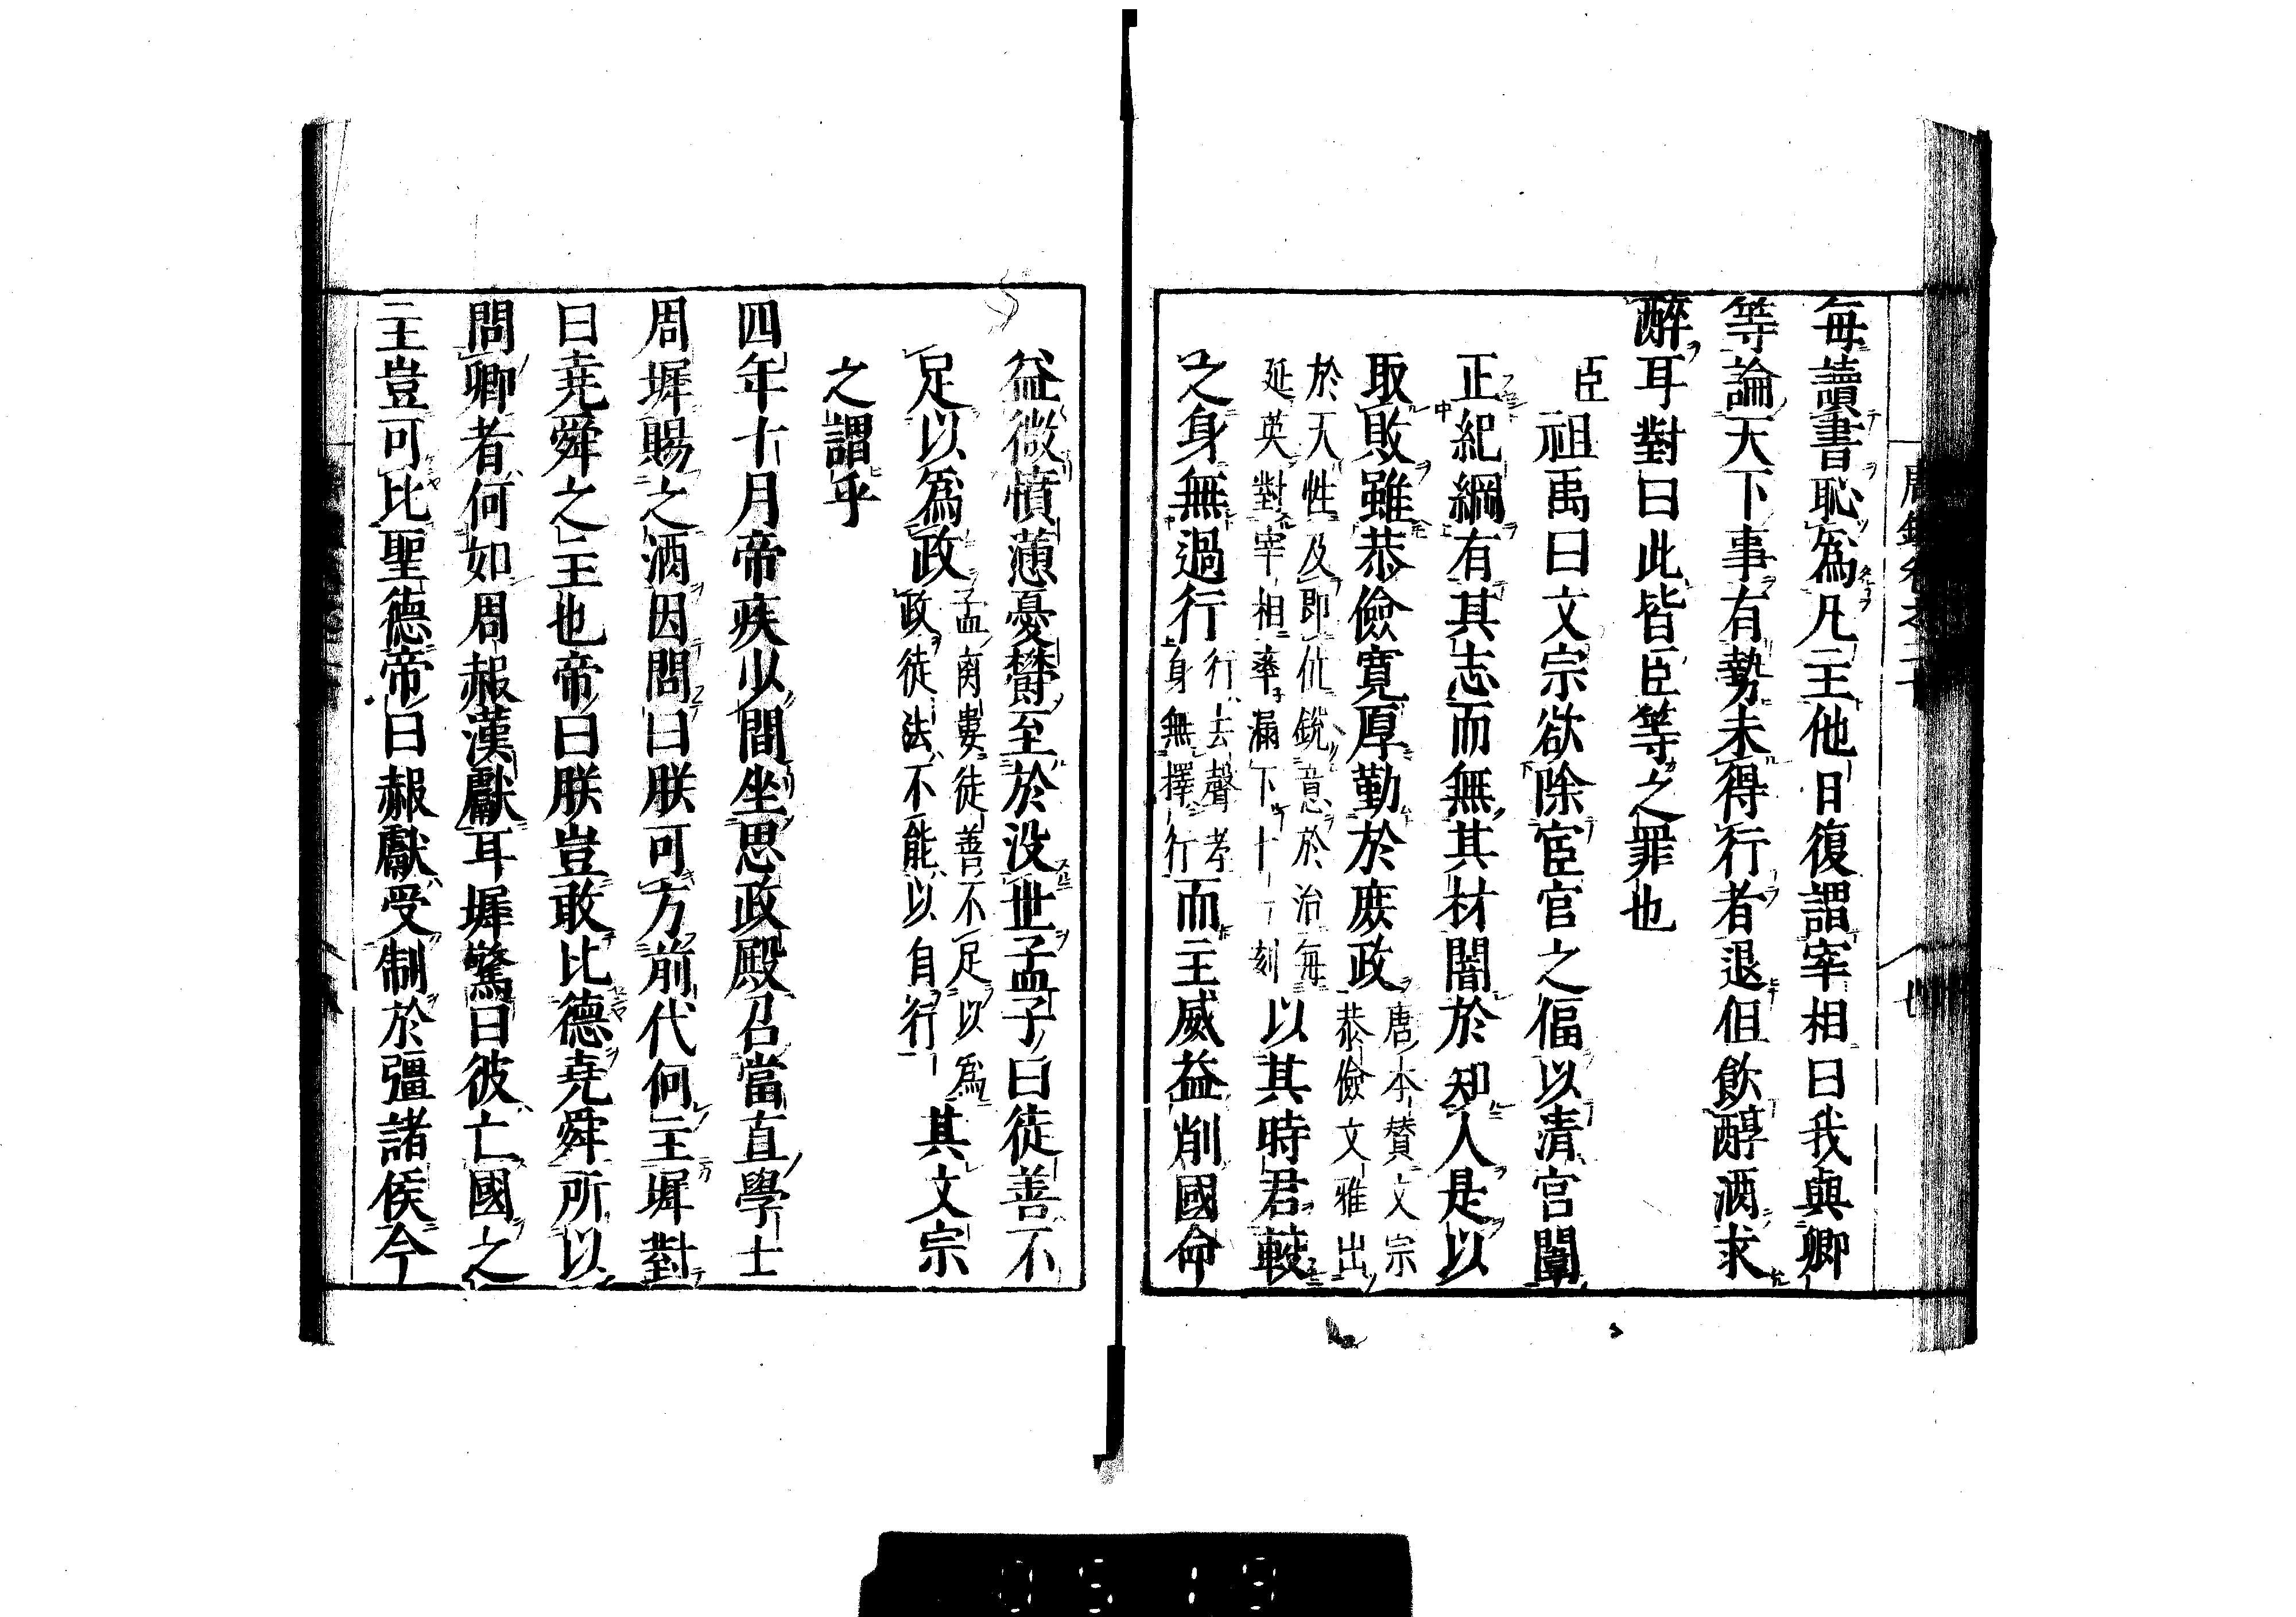 每讀書恥爲凡主他日復謂宰相曰我與卿
等論天下事有勢未得行者退但飮醇酒求
醉耳對曰此皆臣等之罪也
臣祖禹曰文宗欲除宦官之偪以清宮闈
正紀綱有其志而無其材闇於知人是以
取敗雖恭儉寬厚勤於庶政
唐本贊文宗
恭儉文雅出
於天性及即位銳意於治每
延英對宰相率漏下十一刻
以其時君較
之身無過行
行去聲孝
身無擇行
而主威益削國命
益微憤懣憂鬱至於沒世孟子曰徒善不
足以爲政
孟離婁徒善不足以爲
政徒法不能以自行
其文宗
之謂乎
四年十月帝疾少間坐思政殿召當直學士
周墀賜之酒因問曰朕可方前代何主墀對
曰堯舜之主也帝曰朕豈敢比德堯舜所以
問卿者何如周赧漢獻耳墀驚曰彼亡國之
主豈可比聖德帝曰赧獻受制於彊諸侯今